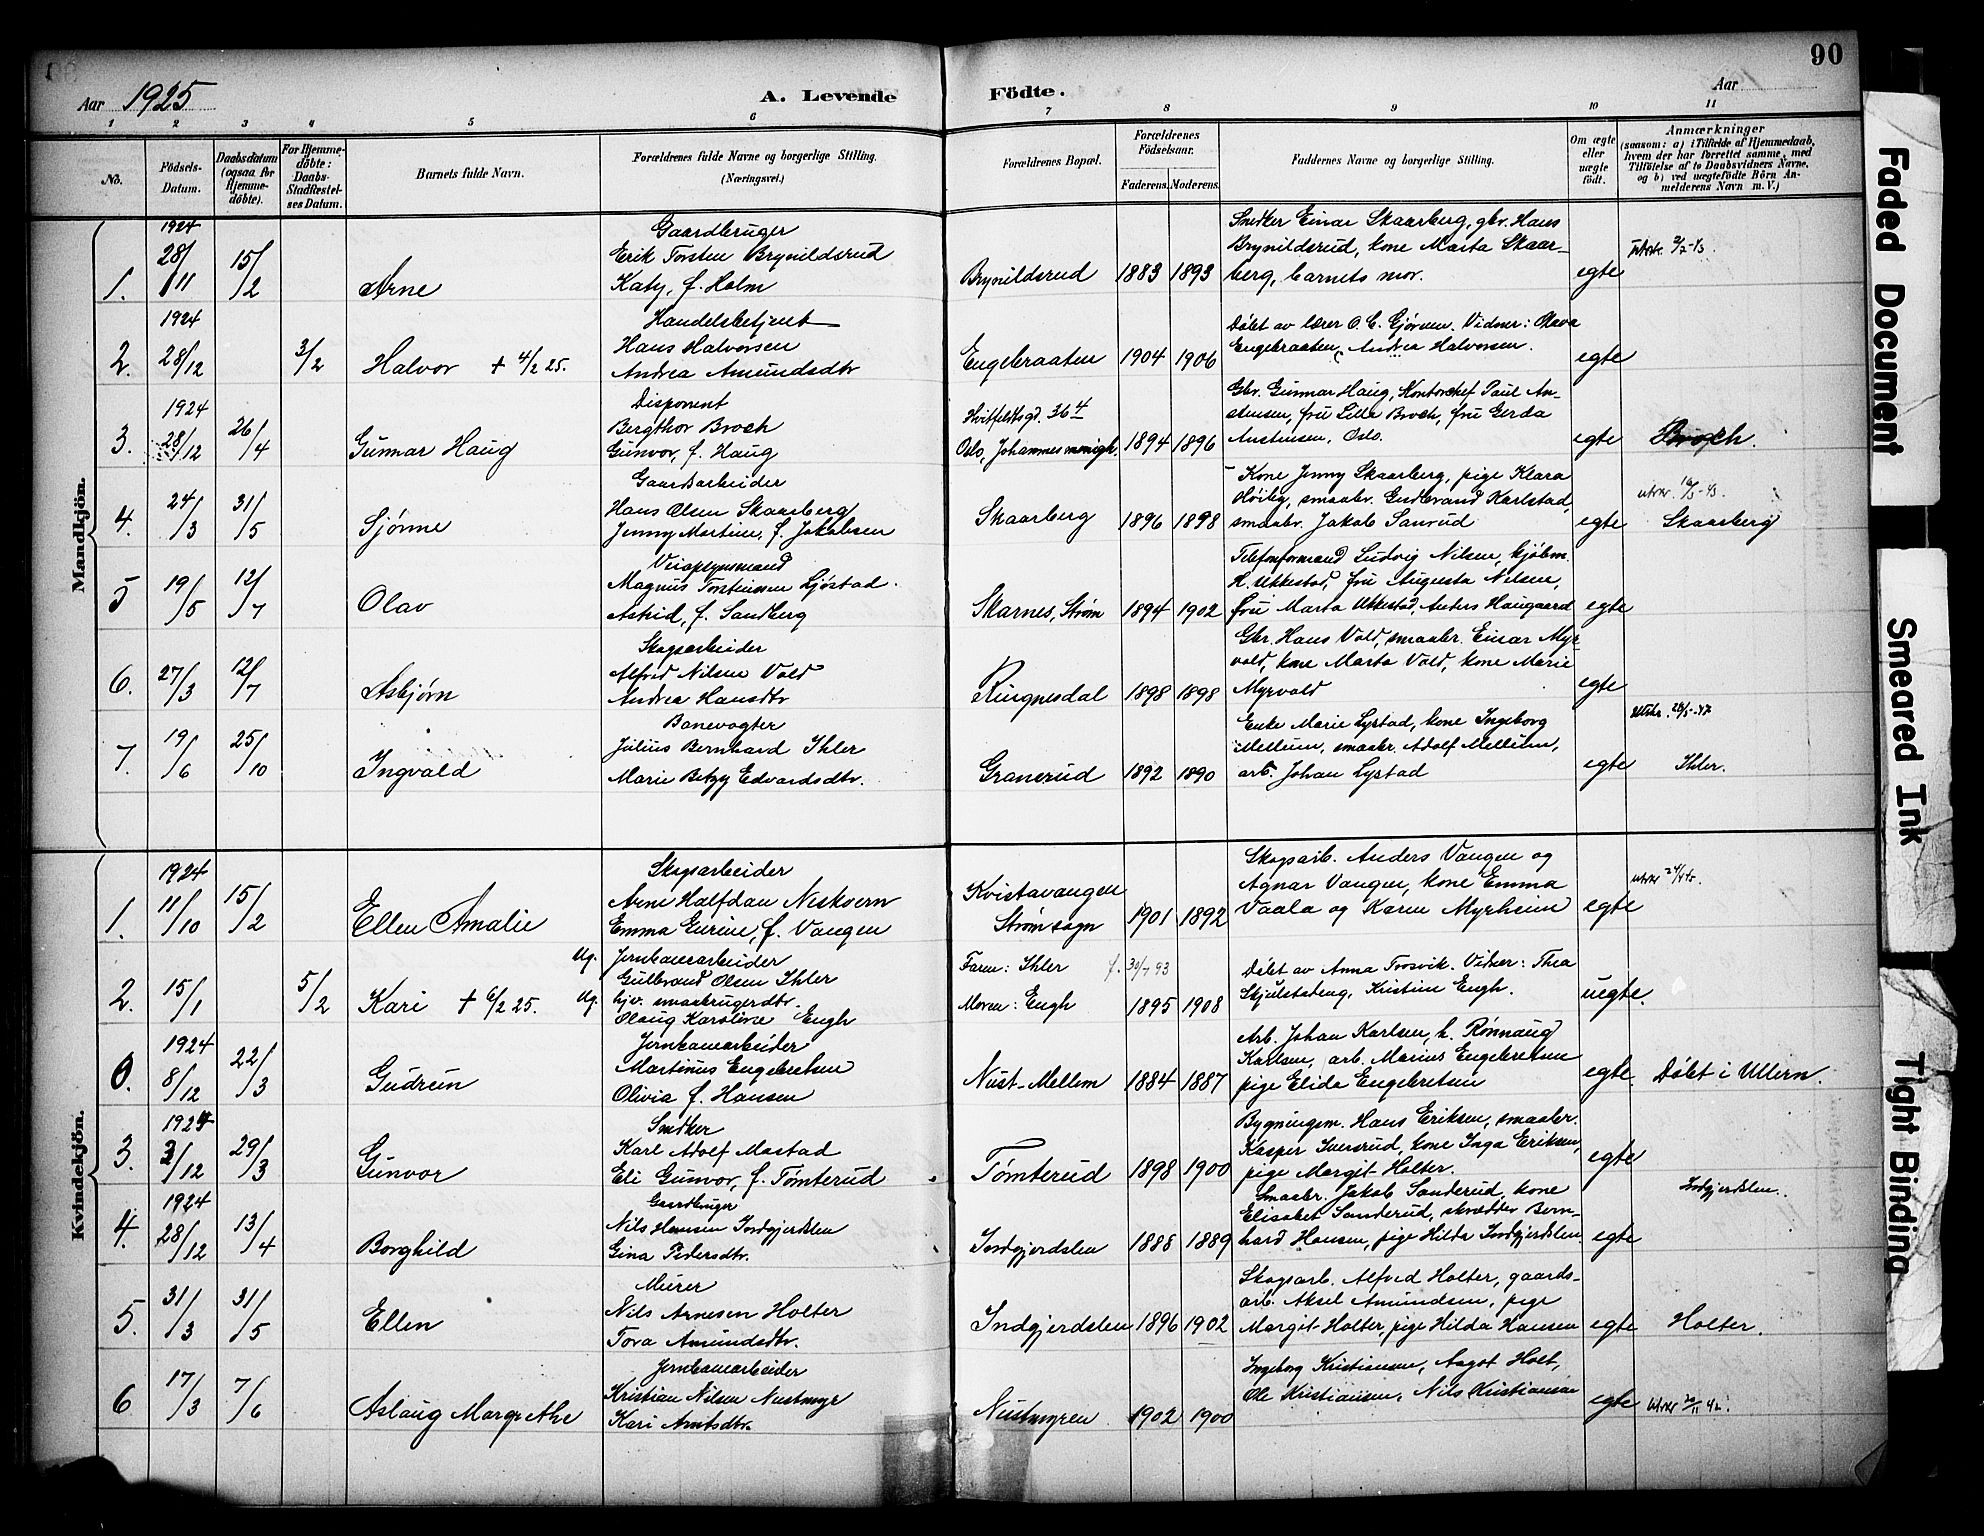 90
Aar 1925
A. Levende Födte.
Aar
1 2 3 4 5 6 7 8 9 10 11
No.
Födsels-Datum.
Daabsdatum (ogsaa for Hjemmedöbte).
For Hjemmedöbte: Daabs-Stadfæstelses Datum.
Barnets fulde Navn.
Forældrenes fulde Navne og borgerlige Stilling. (Næringsvei.)
Forældrenes Bopæl.
Forældrenes Födselsaar.
Faderens. Moderens.
Faddernes Navne og borgerlige Stilling.
Om ægte eller uægte födt.
Anmærkninger
(saasom: a) i Tilfælde af Hjemmedaab, hvem der har forrettet samme, med Tilföielse af to Daabsvidners Navne, og b) ved uægtefödte Börn Anmelderens Navn m. V.)
Mandkjön.
1. 1924 28/11 15/2 Arne
Gaardbruger
Erik Torsten Brynildsrud
Katy, f. Holm
Brynildsrud 1883 1893
Snedker Einar Skaarberg, gbr. Hans
Brynildsrud, kone Marta Skaar-
berg, barnets mor.
egte
2. 1924 28/12 3/2 Halvor + 4/2 25.
Handelsbetjent
Hans Halvorsen
Andrea Amundsdtr
Engebraaten 1904 1906
Døbt av lærer O. C. Gjørven. Vidner: Olava
Engebraaten, Andrea Halvorsen.
egte
3. 1924 28/12 26/4 Gunnar Haug
Disponent
Bergthor Broch
Gunvor, f. Haug
Hvitfeldtsgd. 36 4
Oslo, Johannes menigh. 1894 1896
Gbr. Gunnar Haug, Kontorchef Paul Au-
stensen, fru Lilla Broch, fru Gerda
Austensen, Oslo.
egte Broch.
4. 24/3 31/5 Sjønne
Gaardsarbeider
Hans Olsen Skaarberg
Jenny Martine, f. Jakobsen
Skaarberg 1896 1898
Kone Jenny Skaarberg, pige Klara
Høiby, smaabr. Gudbrand Karlstad,
smaabr. Jakob Sanrud
egte Skaarberg
5 19/5 12/7 Olav
Veiopsynsmand
Magnus Torsteinsen Ljøstad.
Astrid, f. Sandberg
Skarnes, Strøm 1894 1902
Telefonformand Ludvig Nilsen, kjøbm.
H. Ukkestad, fru Augusta Nilsen,
fru Marta Ukkestad, Anders Haugaard
egte
6. 27/3 12/7 Asbjørn
Skogsarbeider
Alfred Nilsen Vold
Andrea Hansdtr
Ringnesdal 1898 1898
Gbr. Hans Vold, smaabr. Einar Myr-
vold, kone Marta Vold, kone Marie
Myrvold
egte
7. 19/6 25/10 Ingvald
Banevogter
Julius Bernhard Ihler
Marie Betzy Edvardsdtr.
Granerud 1892 1890
Enke Marie Lystad, kone Ingeborg
Mellum, smaabr. Adolf Mellum,
arb. Johan Lystad
egte Ihler.
Kvindekjön.
1. 1924 11/10 15/2 Ellen Amalie
Skogsarbeider
Arne Halfdan Neskvern
Emma Eurine, f. Vangen
Kvistavangen
Strøm sogn 1901 1892
Skogsarb. Anders Vangen og
Agnar Vangen, kone Emma
Vaala og Karen Myrheim
egte
2. 15/1 5/2 Kari + 6/2 25.
Ug. Jernbanearbeider
Gulbrand Olsen Ihler
Ug. hjv. smaabrugerdtr.
Olaug Karoline Engh
Faren: Ihler f. 30/7 93
Moren: Engh 1895 1908
Døbt av Anna Trosvik. Vidner: Thea
Skjulstadeng, Kristine Engh.
uegte.
0. 1924 8/12 22/3 Gudrun
Jernbanearbeider
Martinus Engebretsen
Olivia f. Hansen
Nust-Mellem 1884 1887
Arb. Johan Karlsen, h. Rønnaug
Karlsen, arb. Marius Engebretsen
pige Elida Engebretsen
egte. Døbt i Ullern.
3. 1924 2/12 29/3 Gunvor
Snedker
Karl Adolf Mastad
Eli Gunvor, f. Tømterud
Tømterud 1898 1900
Bygningsm. Hans Eriksen, smaabr.
Kasper Iversrud, kone Inga Eriksen,
pige Margit Holter.
egte
4. 1924 28/12 13/4 Borghild
Gaardbruger
Nils Hansen Indgjerdslen
Gina Pedersdtr.
Indgjerdslen 1888 1889
Smaabr. Jakob Sanderud, kone
Elisabet Sanderud, skrædder Bern-
hard Hansen, pige Hilda Indgjerdslen.
egte Indgjerdslen.
5. 31/3 31/5 Ellen
Murer
Nils Arnesen Holter
Tora Amundsdtr.
Indgjerdslen 1896 1902
Skogsarb. Alfred Holter, gaards-
arb. Aksel Amundsen, pige
Margit Holter, pige Hilda Hansen
egte Holter.
6 17/3 7/6 Aslaug Margrethe
Jernbanearbeider
Kristian Nilsen Nustmyr
Kari Arntsdtr.
Nustmyren 1902 1900
Ingeborg Kristiansen, Aagot Holt,
Ole Kristiansen, Nils Kristiansen
egte
Faded Document
Smeared Ink
Tight Binding